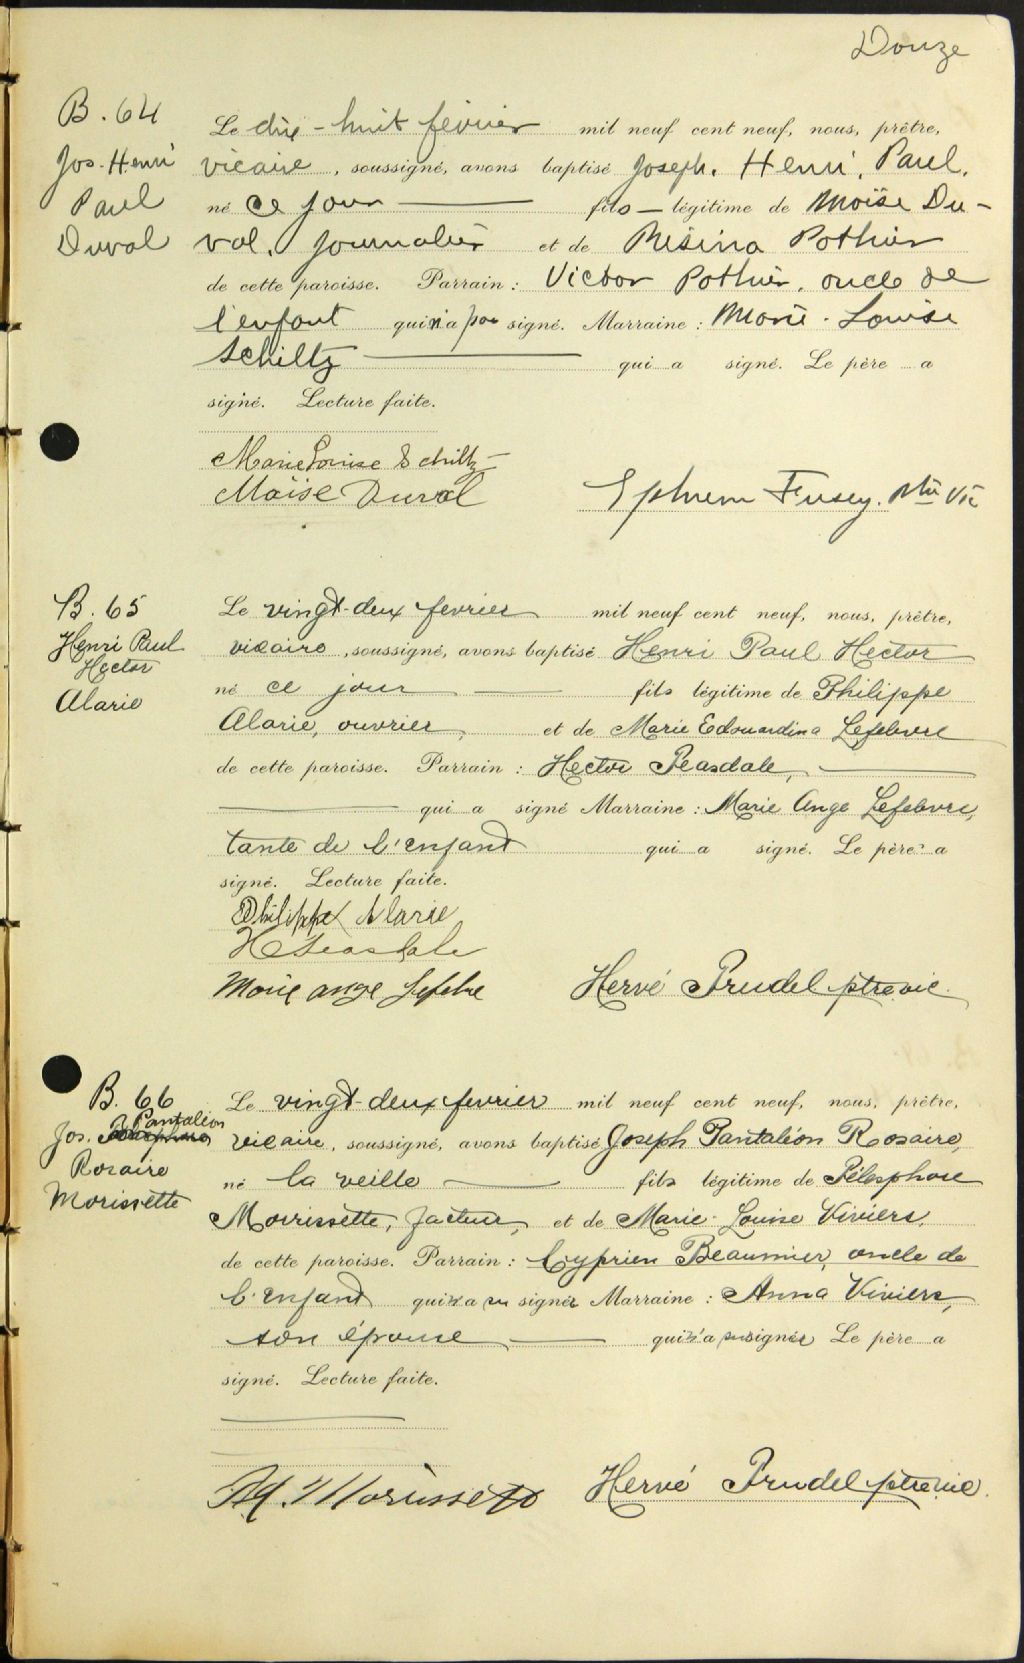 Douze
B. 64
Jos. Henri
Paul
Duval
Le dix-huit février mil neuf cent neuf, nous, prêtre,
vicaire, soussigné, avons baptisé Joseph, Henri, Paul,
né ce jour fils légitime de Moïse Du-
val, journalier et de Résina Pothier
de cette paroisse. Parrain : Victor Pothier, oncle de
l'enfant qui n'a pas signé. Marraine : Marie-Louise
Schiltz qui a signé. Le père a
signé. Lecture faite.
Marie Louise Schiltz
Moïse Duval
Ephrem Fusey. Ptre Vic
B. 65
Henri Paul
Hector
Alarie
Le vingt-deux fevrier mil neuf cent neuf, nous, prêtre,
vicaire, soussigné, avons baptisé Henri Paul Hector
né ce jour fils légitime de Philippe
Alarie, ouvrier, et de Marie Edouardina Lefebvre
de cette paroisse. Parrain : Hector Teasdale,
qui a signé Marraine : Marie Ange Lefebvre,
tante de l'enfant qui a signé. Le père a
signé. Lecture faite.
Philippe Alarie
H Teasdale
Marie ange Lefebvre
Hervé Trudel ptre vic.
B. 66
Jos. Pantaléon
Rosaire
Morissette
Le vingt-deux fevrier mil neuf cent neuf, nous, prêtre,
vicaire, soussigné, avons baptisé Joseph Pantaléon Rosaire,
né la veille fils légitime de Télesphore
Morrissette, facteur, et de Marie-Louise Viviers,
de cette paroisse. Parrain : Cyprien Beaumier, oncle de
l'enfant qui n'a su signer Marraine : Anna Viviers,
son épouse qui n'a su signer Le père a
signé. Lecture faite.
Morissette
Hervé Trudel ptre vic.